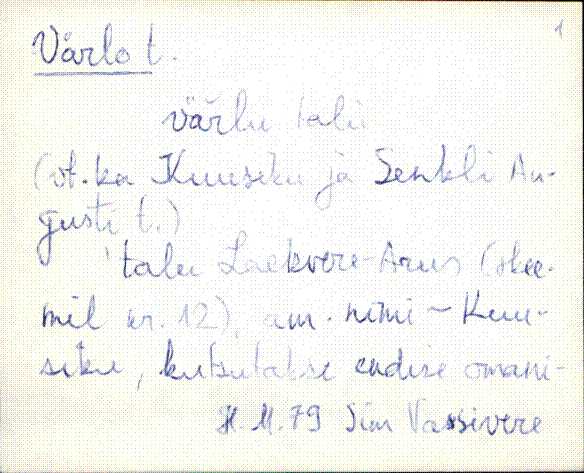 1
Värlo t.
vär̆lu talu
(vt. ka Kuuseku ja Senkli Au-
gusti t.)
'talu Laekvere-Arus (skee-
mil nr. 12), am. nimi ~ Kuu-
siku, kutsutakse endise omani-
H. M. 79 Sim Vassivere